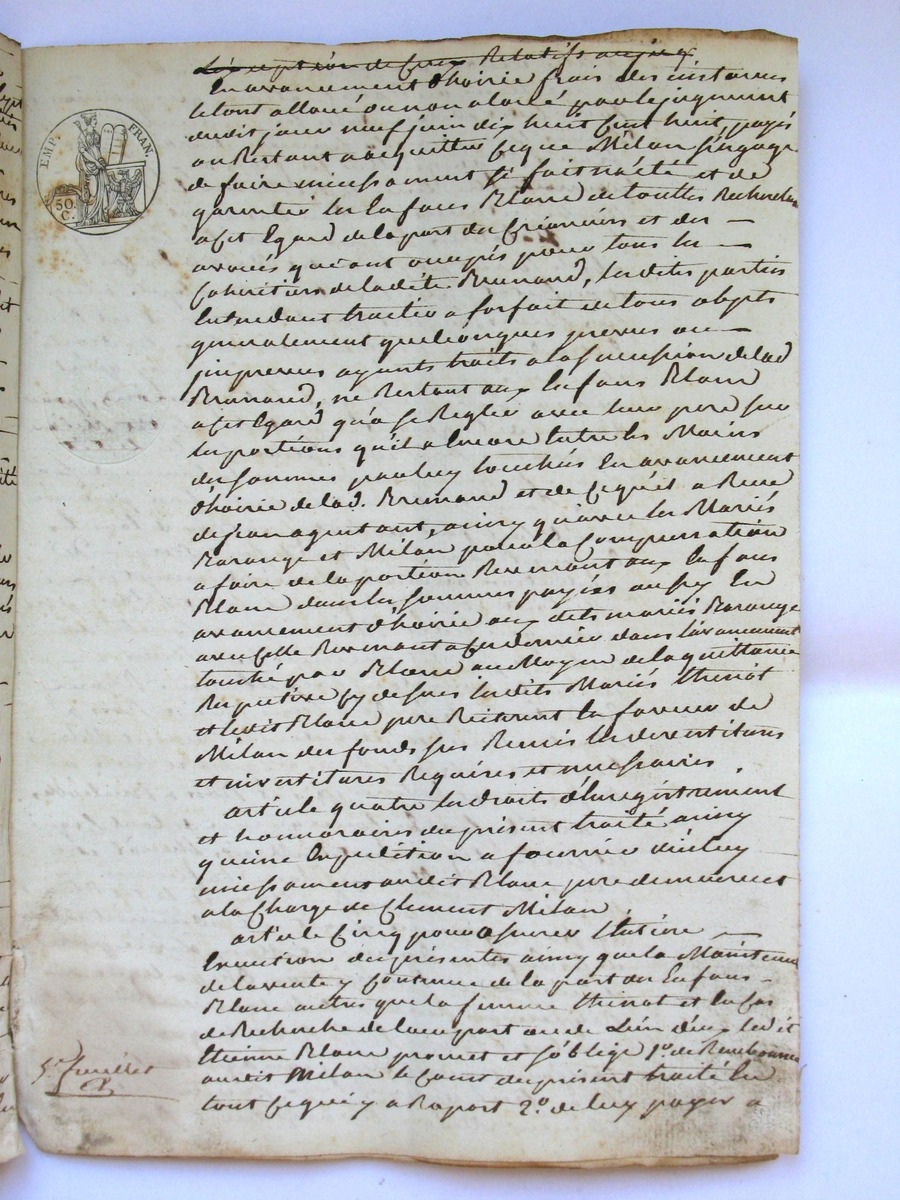 EMP. FRAN.
50 C.
L'exception de ceux Relatifs aux
En avancement d'hoirie frais des instances
le tout alloué ou non aloué par le jugement
dudit jour neuf juin dix huit cent huit payés
ou Restant a acquitter ce que Milan s'engage
de faire incessament si fait n'a été et de
garentir les Enfans Blanc de touttes Recherches
a cet Egard de la part des Créanciers et des
avoués qui ont occupés pour tous les
Cohéritiers de ladite Brunand, lesdites parties
Entendant traiter a forfait de tous objets
generalement quelconques prevus ou
imprevus ayants traits a la succession de lad.
Brunand, ne Restant aux Enfans Blanc
a cet Egard qu'a se Regler avec leur pere sur
les portions qu'il a Encore Entre les Mains
des sommes par luy touchées En avancement
d'hoirie de lad. Brunand et de ce qu'il a Reçu
de Jean agutant, ainsy qu'avec les Mariés
Barange et Milan pour la Compensation
a faire de la portion Revenant aux Enfans
Blanc dans les sommes payées aussy En
avancement d'hoirie aux dits mariés Barange
avec celle Revenant a ces derniers dans l'avancement
touché par Blanc au Moyen de la quittance
Respective cy dessus lesdits Mariés thinot
et ledit Blanc pere Reiterent En faveur de
Milan des fonds sus Remis les devestitures
et investitures Requises et necessaires.
article quatre les droits d'Enregistrement
et honnoraires du présent traité ainsy
qu'une Expedition a fournir d'icluy
incessament audit Blanc pere demeurent
a la Charge de Clement Milan.
article Cinq pour assurer l'Entiere
Execution des présentes ainsy que la Maintenue
de la vente y Contenue de la part des Enfans
Blanc autres que la femme thinot et En Cas
de Recherche de leur part ou de L'un d'eux ledit
Etienne Blanc promet et s'oblige 1.º de Rembourser
audit Milan le Cout du présent traité En
tout ce qui y a Raport 2.º de luy payer a
5.e feuillet